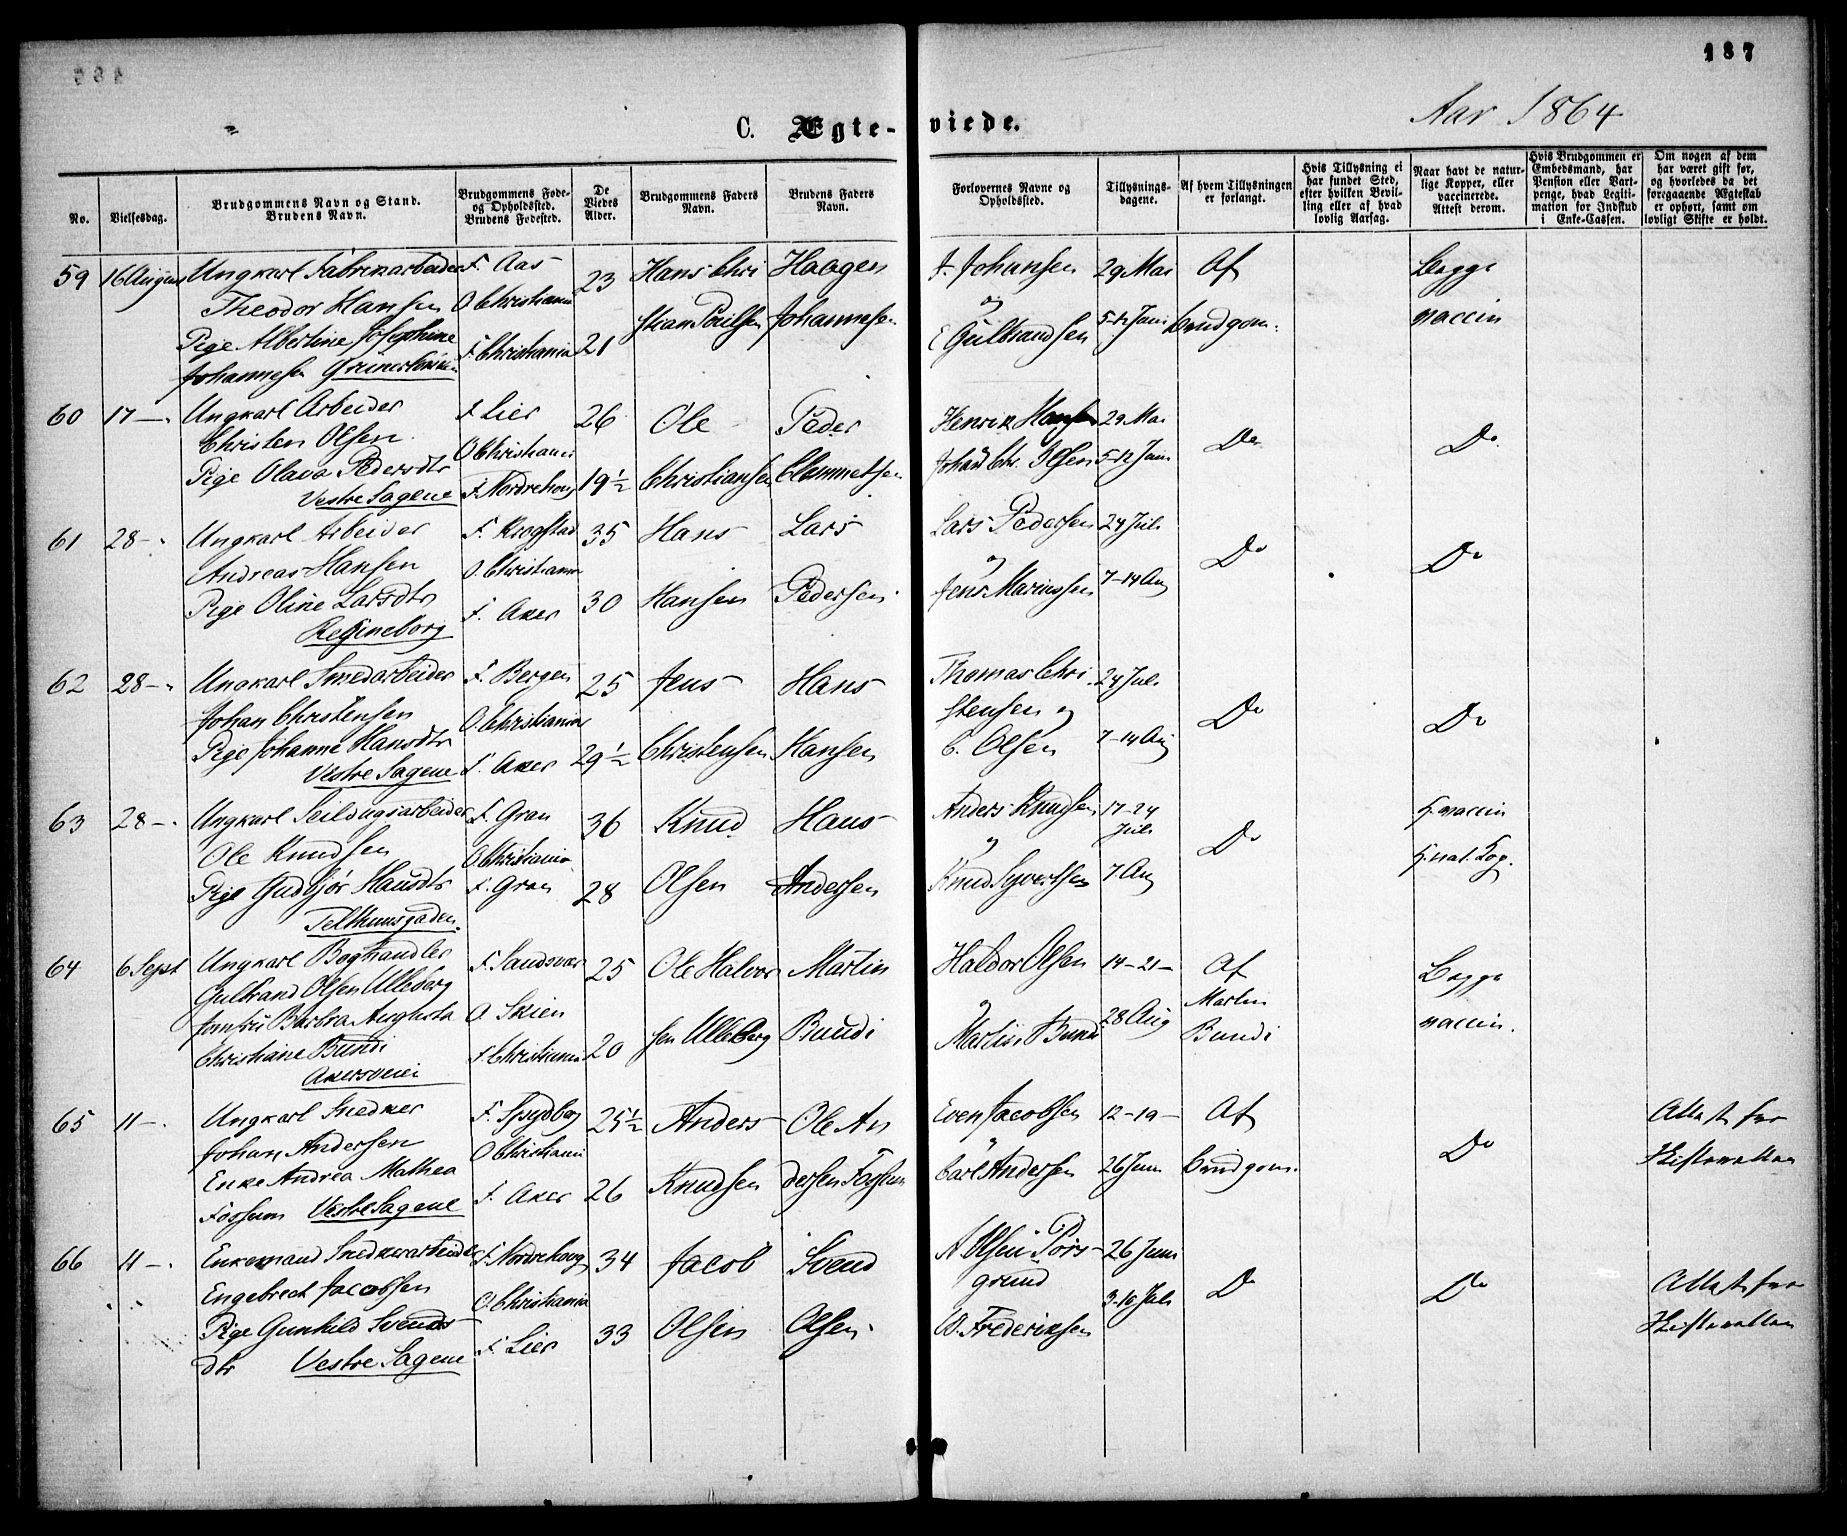 187
Aar 1864
C. Ægte-viede.
No.
Vielsesdag.
Brudgommens Navn og Stand.
Brudens Navn.
Brudgommens Føde-
og Opholdssted.
Brudens Fødested.
De
Viedes
Alder.
Brudgommens Faders
Navn.
Brudens Faders
Navn.
Forlovernes Navne og
Opholdssted.
Tillysnings-
dagene.
Af hvem Tillysningen
er forlangt.
Hvis Tillysning ei
har fundet Sted,
efter hvilken Bevil-
ling eller af hvad
lovlig Aarsag.
Naar havt de natur-
lige Kopper, eller
vaccinerede.
Attest derom.
Hvis Brudgommen er
Embedsmand, har
Pension eller Vart-
penge, hvad Legiti-
mation for Indskud
i Enke-Cassen.
Om nogen af dem
har været gift før,
og hvorledes da det
foregaaende Ægteskab
er ophørt, samt om
lovligt Skifte er holdt.
59 16 August Ungkarl Fabrikarbeider F. Aas 23 Hans Chri Haagen A. Johansen 29 Mai Af Begge
Theodor Hansen O. Christiania stian Poulsen Johannesen og 5-12 Juni brudgom. vaccin
Pige Albertine Josephine F. Christiania 21 E Gulbrandsen
Johannesen Grünerløkken
60 17 — Ungkarl Arbeider F. Lier 26 Ole Peder Henrik Hansen 29 Mai
Christen Olsen O Christiania Do Do
Pige Olava Pedersdtr F. Nordrehoug 19½ Christiansen Clemmetsen Johan Chr. Olsen 5-12 Juni
Vestre Sagene
61 28 — Ungkarl Arbeider F. Krogstad 35 Hans Lars Lars Pedersen 24 Juli
Andreas Hansen O. Christiania og Do Do
Pige Oline Larsdtr F. Aker 30 Hansen Pedersen Jens Mariussen 7-14 Aug
Regineborg
62 28 — Ungkarl Smedarbeider F. Bergen 25 Jens Hans Thomas Chri 24 Juli
Johan Christensen O Christiania stensen og Do Do
Pige Johanne Hansdtr F. Aker 29½ Christensen Hansen C. Olsen 7-14 Aug
Vestre Sagene
63 28 — Ungkarl Seildugsarbeider F. Gran 36 Knud Hans Anders Knudsen 17-24 Juli vaccin
Ole Knudsen O Christiania og Do nat. Kop.
Pige Gudbjør Hansdtr F. Gran 28 Olsen Andersen Knud Syvertsen 7 Aug
Telthuusgaden
64 6 Sept Ungkarl Boghandler F. Sandsvær 25 Ole Halvor Martin Haldor Olsen 14-21- Af Begge
Gulbrand Olsen Ulleberg O. Skien sen Ulleberg Bundi og 28 Aug Martin Bundi vaccin.
Jomfru Barbra Augusta Martin Bundi
Christiane Bundi F. Christiania 20
Akersveien
65 11 — Ungkarl Snedker F. Spydberg 25½ Anders Ole An Even Jacobsen 12-19- Af Attest fra
Johan Andersen O Christiania Do Skifteretten
Enke Andrea Mathea F. Aker 26 Knudsen dersen Fossum Carl Andersen 26 Juni brudgom.
Fossum Vestre Sagene
66 11 — Enkemand Snedkerarbeider F. Nordrehoug 34 Jacob Svend A Olsen Pors- 26 Juni
Engebret Jacobsen O. Christiania grund 3-10 Juli Do Do Attest fra
Pige Gunhild Svends- F. Lier 33 Olsen Olsen O. Frederiksen Skifteretten
dtr Vestre Sagene